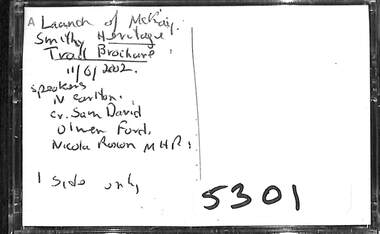 A Launch of McKay
Smithy Heritage
Trail Brochure
11/6/2002.
speakers
N Carlton.
Cr. Sam David
Olwen Ford.
Nicola Roxon M H R.
1 side only
5301